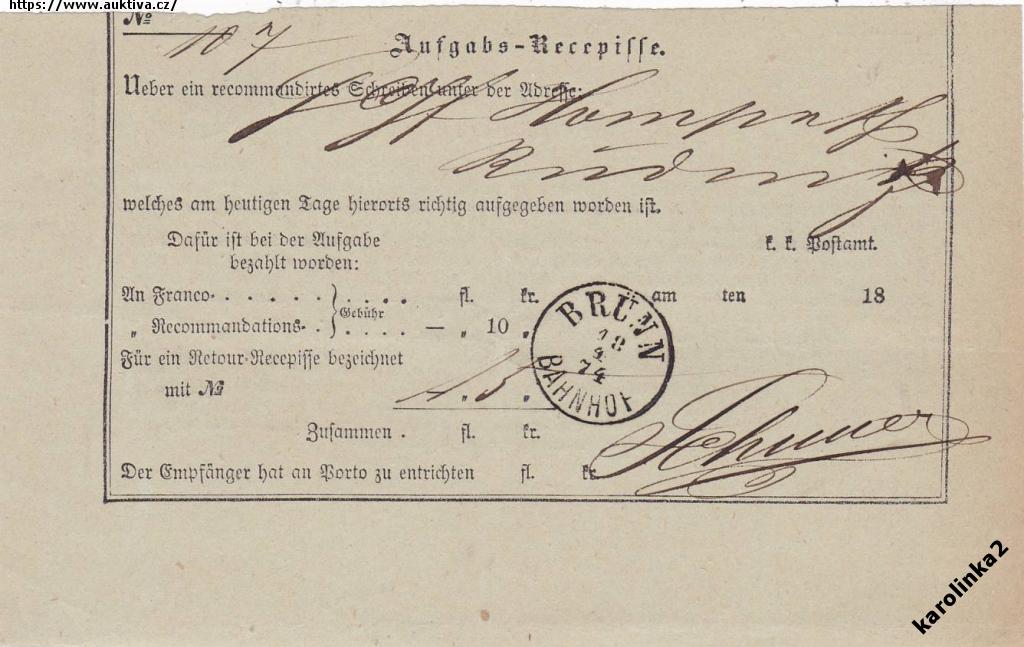 https://www.auktiva.cz/
№
107
Aufgabs-Recepisse.
Ueber ein recommandirtes Schreiben unter der Adresse:
welches am heutigen Tage hierorts richtig aufgegeben worden ist.
Dafür ist bei der Aufgabe
bezahlt worden:
k. k. Postamt.
An Franco . . . . . . . . . . fl. kr.
„ Recommandations- . . . . . — „ 10 „
Gebühr
am ten 18
BRÜNN
18
4
74
BAHNHOF
Für ein Retour-Recepisse bezeichnet
mit № „ „
Zusammen . fl. kr.
Der Empfänger hat an Porto zu entrichten fl. kr.
karolinka2